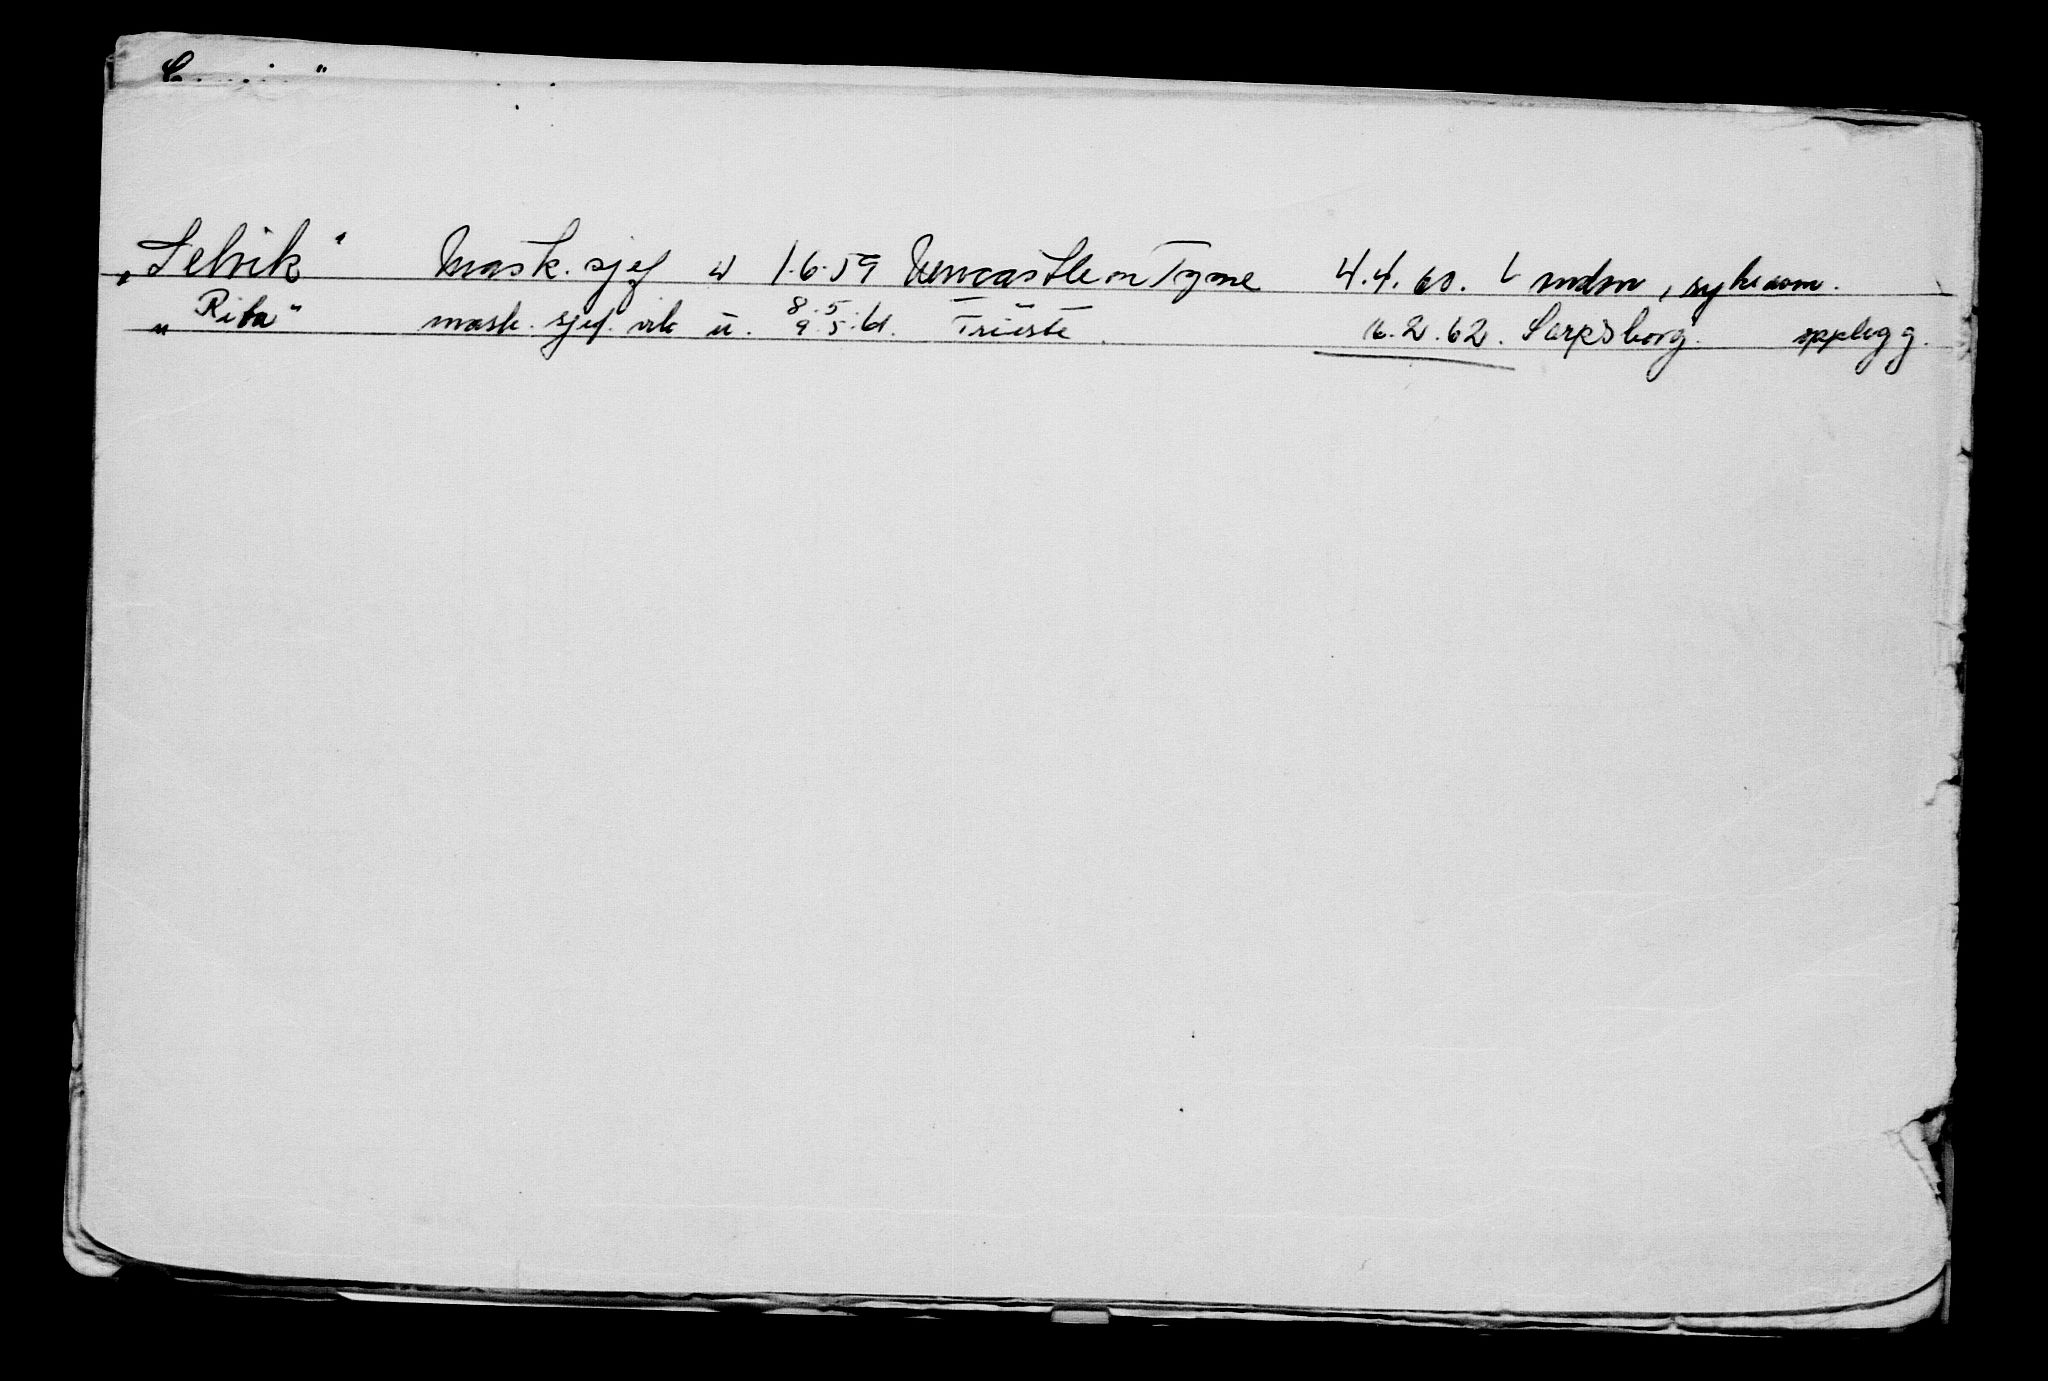 „Selvik" Mask. sjef u 1.6.59 Newcastle on Tyne 4.4.60. London, sykdom.
„Rita" mask. sjef. vik u. 8.5. 9.5.61. Trieste. 16.2.62. Sarpsborg. opplegg.